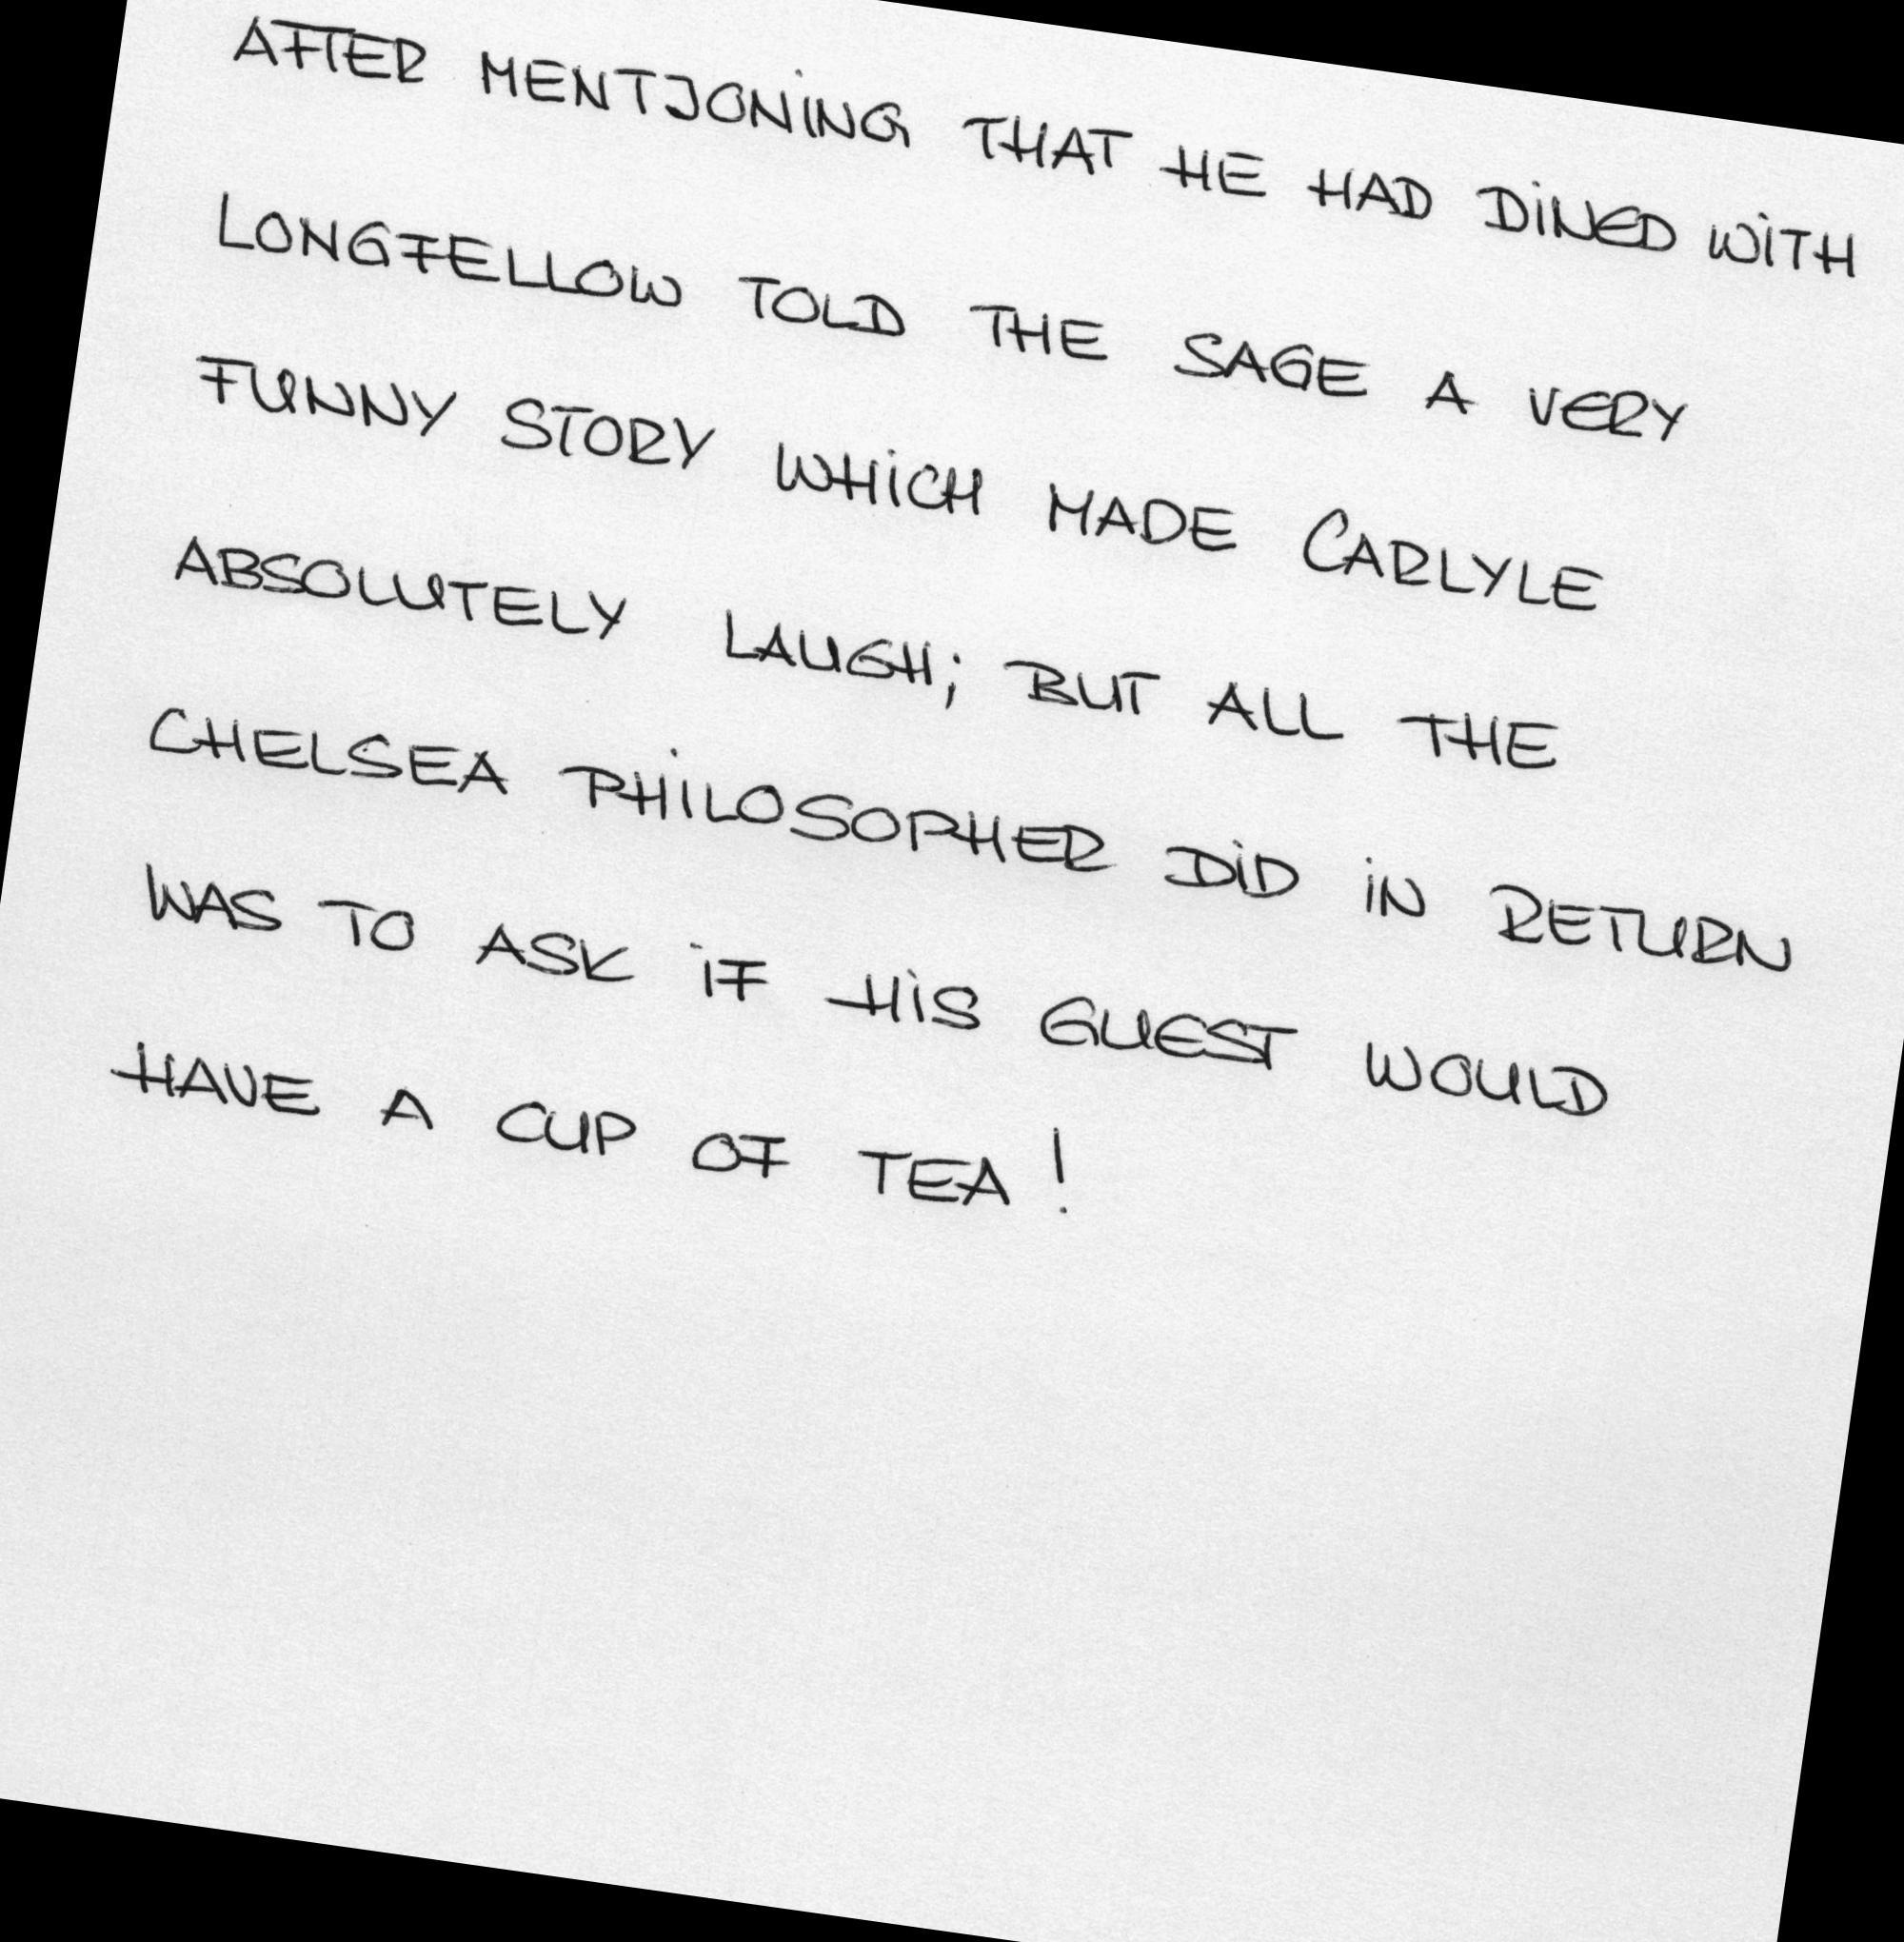 AFTER MENTJONING THAT HE HAD DINED WITH
LONGFELLOW TOLD THE SAGE A VERY
FUNNY STORY WHICH MADE CARLYLE
ABSOLUTELY LAUGH; BUT ALL THE
CHELSEA PHILOSOPHER DID IN RETURN
WAS TO ASK IF HIS GUEST WOULD
HAVE A CUP OF TEA!